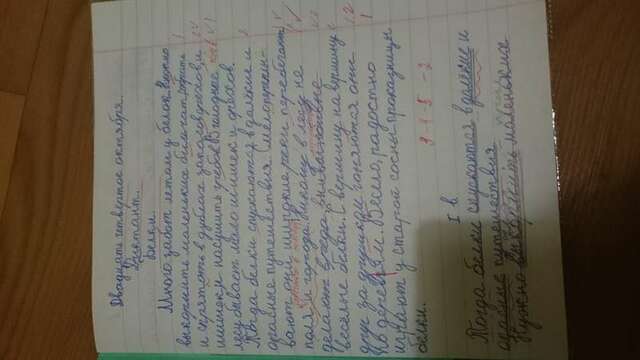 Двадцать четвертое октября.
Диктант.
Белки.
Много забот летом у белок. Нужно
выкормить маленьких бельчат, собрать
и спрятать в дуплах запасов орехов, и
шишок насушить грибов. В голодное
лесу бывает мало шишек и орехов.
Тогда белки спускаются в далёкие и
опасные путешествия. Смело
вают они широкие реки перебегают
поля и города. Никому в лесу не
делают вреда
весёлые белки. С вершину на вершину
друг за дружкой гоняются они
по деревям. Весело, радостно
играют у старой сосны проказницы
белки.
9-4-5 -2
I в.
Тогда белки спускаются в далёкие и
опасные путешествия
Нужно выкормить маленьких